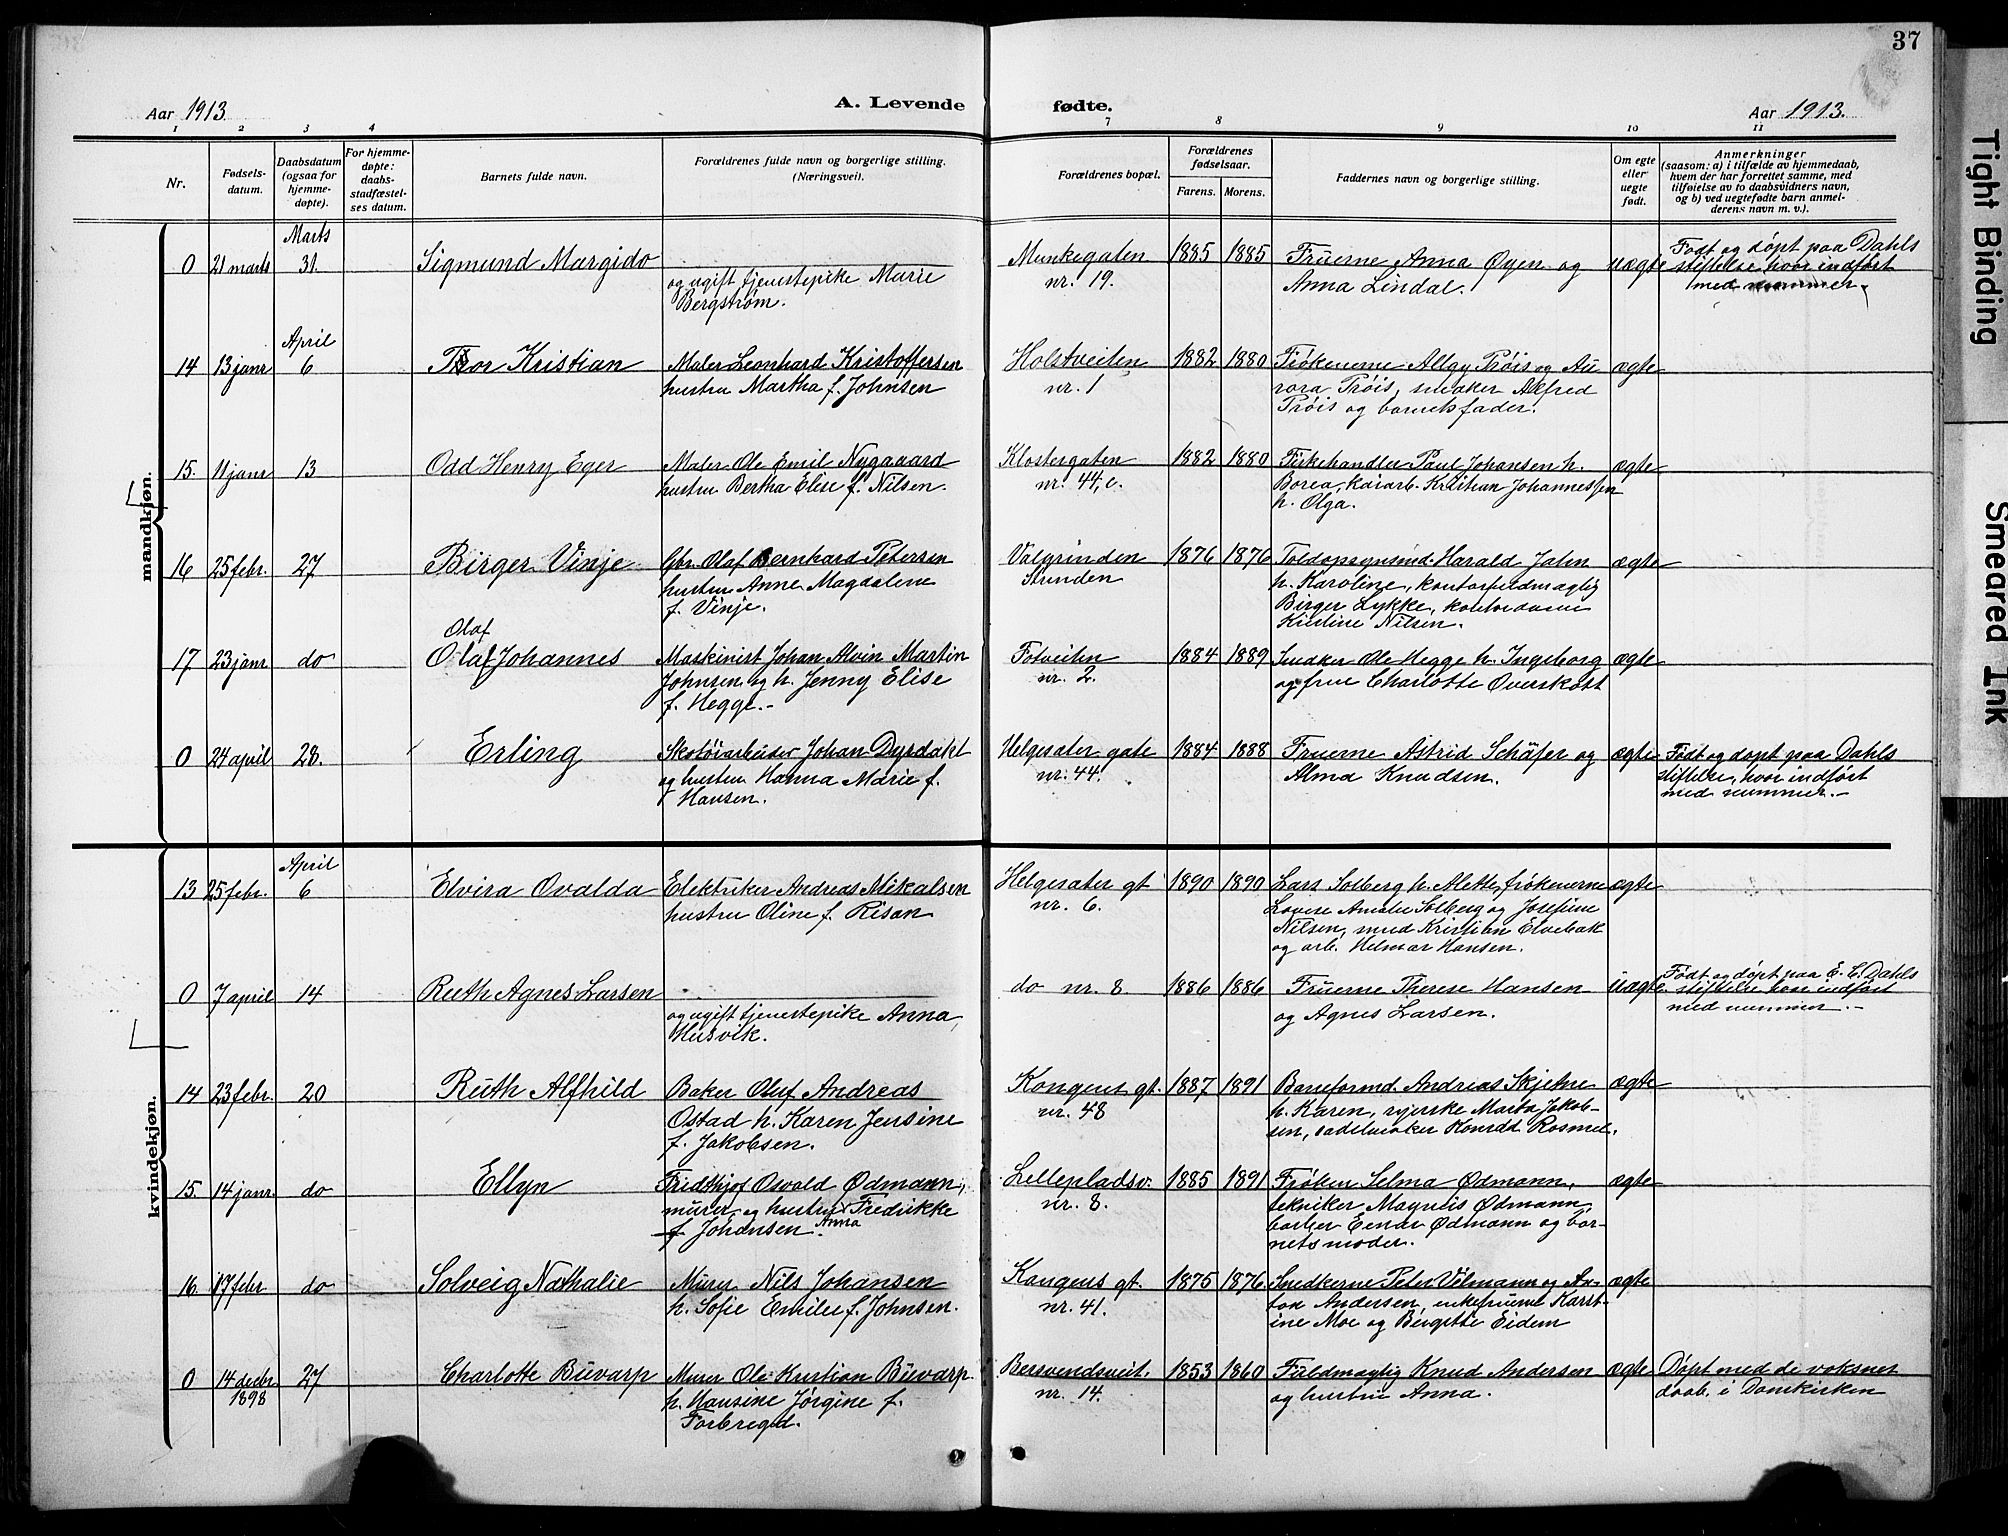 37
Aar 1913.
A. Levende fødte.
Aar 1913.
1 2 3 4 7 8 9 10 11
Nr.
Fødsels-
datum.
Daabsdatum
(ogsaa for
hjemme-
døpte).
For hjemme-
døpte:
daabs-
stadfæstel-
ses datum.
Barnets fulde navn.
Forældrenes fulde navn og borgerlige stilling.
(Næringsvei).
Forældrenes bopæl.
Forældrenes
fødselsaar.
Farens. Morens.
Faddernes navn og borgerlige stilling.
Om egte
eller
uegte
født.
Anmerkninger
(saasom: a) i tilfælde av hjemmedaab,
hvem der har forrettet samme, med
tilføielse av to daabsvidners navn,
og b) ved uegtefødte barn anmel-
derens navn m. v.).
mandkjøn.
Marts
0 21 marts 31. Sigmund Margido
og ugift tjenestepike Marie
Bergstrøm.
Munkegaten
nr. 19.
1885 1885
Fruerne Anna Øyen og
Anna Lindal.
uægte
Født og døpt paa Dahls
stiftelse, hvor indført
med nummer.
April
14 13 janr 6 Thor Kristian
Maler Leonhard Kristoffersen
hustru Martha f. Johnsen
Holstveiten
nr. 1
1882 1880
Frøkenerne Allgy Trøis og Au
rora Trøis, snedker Alfred
Trøis og barnets fader.
ægte
15. 11 janr 13 Odd Henry Eger
Maler Ole Emil Nygaaard
hustru Bertha Elise f. Nilsen.
Klostergaten
nr. 44, c.
1882 1880
Fiskehandler Paul Johansen h.
Borea, Kristian Johannessen
h. Olga.
ægte
16 25 febr. 27 Birger Vinje
Gbr. Olaf Bernhard Petersen
hustru Anne Magdalene
f. Vinje.
Valgrinden
Strinden
1876 1876
Toldopsynsmd. Harald
h. Karoline, kontorfuldmægtig
Birger Lykke,
Kirstine Nilsen.
ægte
Olaf
17 23 janr do Olaf Johannes
Maskinist Johan Alvin Martin
Johnsen og h. Jenny Elise
f. Hegge.
Totveiten
nr. 2.
1884 1889
Snedker Ole Hegge h. Ingeborg
og frue Charlotte Overskott
ægte
0 24 april 28. Erling
Skotøiarbeider Johan Dyrdahl
og hustru Hanna Marie f.
Hansen.
Helgesæter gate
nr. 44.
1884 1888
Fruerne Astrid Schäfer og
Alma Knudsen.
ægte
Født og døpt paa Dahls
stiftelse, hvor indført
med nummer.
kvindekjøn.
April
13 25 febr. 6 Elvira Ovalda
Elektriker Andreas Mikalsen
hustru Oline f. Risan
Helgesæter gt
nr. 6.
1890 1890
Lars Solberg h. Alette, frøkenerne
Lovise Amalie Solberg og Josefine
Nilsen, smed Kristian Elvebak
og arb. Helmar Hansen.
ægte
0 7 april 14 Ruth Agnes Larsen
og ugift tjenestepike Anna
Husvik.
do nr. 8
1886 1886
Fruerne Therese Hansen
og Agnes Larsen.
uægte
Født og døpt paa E. C. Dahls
stiftelse hvor indført
med nummer.
14 23 febr. 20 Ruth Alfhild
Baker Oluf Andreas
Ostad h. Karen Jensine
f. Jakobsen.
Kongens gt.
nr. 48
1887 1891
Baneformd Andreas Skjetne
h. Karen, syerske Marta Jakob-
sen, sadelmaker Konrad Rosmel.
ægte
15. 14 janr. do Ellyn
Fridthjof Osvald Ødmann,
murer og hustru Fredrikke
f. Johansen. Anna
Lillepladsv.
nr. 8.
1885 1891
Frøken Selma Ødmann,
tekniker Magnus Ødmann,
barber Einar Ødmann og bar-
nets moder.
ægte
16. 17 febr do Solveig Nathalie
Murer Nils Johansen
h. Sofie Emilie f. Johnsen.
Kongens gt.
nr. 41.
1875 1876
Snedkerne Peter Vilmann og An-
ton Andersen, enkefruerne Karst-
ine Moe og Birgitte Eidem
ægte
0 14 decbr. 27 Charlotte Buvarp
1898
Murer Ole Kristian Buvarp
h. Hansine Jørgine f.
Forbregd.
Bersvendsveit.
nr. 14.
1853 1860
Fuldmægtig Knud Andersen
og hustru Anna.
ægte
Døpt med de voksnes
daab, i Domkirken
Tight Binding
Smeared Ink